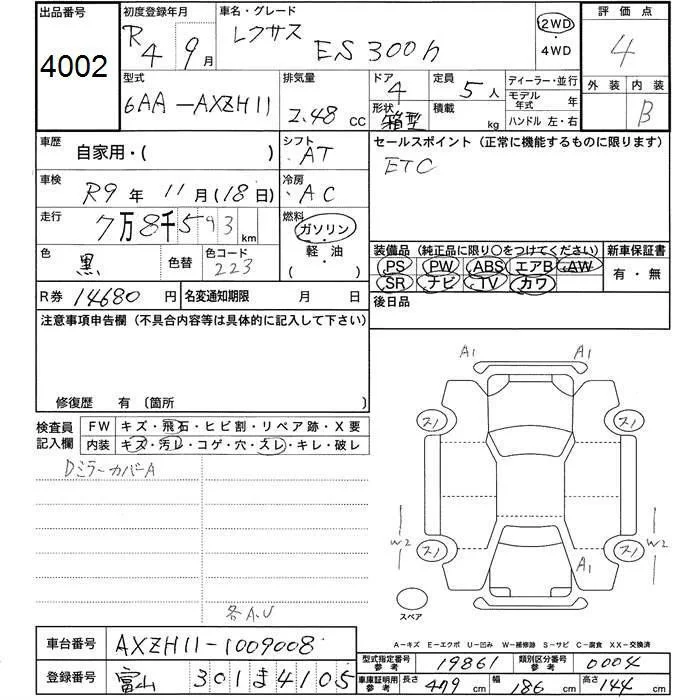 出品番号
4002
初度登録年月
R4 9月
車名・グレード
レクサス ES300h
2WD
・
4WD
評価点
4
型式
6AA-AXZH11
排気量
2.48 cc
ドア
4
形状
箱型
定員
5人
積載
kg
ディーラー・並行
モデル年式 年
ハンドル 左・右
外装 内装
B
車歴
自家用・( )
シフト
AT
セールスポイント (正常に機能するものに限ります)
ETC
車検
R9年 11月(18日)
冷房
AC
走行
7万8千593 km
燃料
ガソリン
軽・油
( )
色
黒
色替
色コード
223
装備品 (純正品に限り○をつけてください)
PS PW ABS エアB AW
SR ナビ TV カワ
新車保証書
有・無
R券 14680円
名変通知期限 月 日
後日品
注意事項申告欄 (不具合内容等は具体的に記入して下さい)
修復歴 有 〔箇所 〕
検査員記入欄
FW キズ・飛石・ヒビ割・リペア跡・X要
内装 キズ・汚レ・コゲ・穴・スレ・キレ・破レ
DミラーカバーA
各A.U
A1 A1
ス1 ス1
W2 W2
ス1 ス1
A1
スペア
A-キズ E-エクボ U-凹み W-補修跡 S-サビ C-腐食 XX-交換済
車台番号 AXZH11-1009008
登録番号 富山 301 ま 4105
型式指定番号 参考 19861
類別区分番号 参考 0004
車庫証明用 参考 長さ 479 cm 幅 186 cm 高さ 144 cm